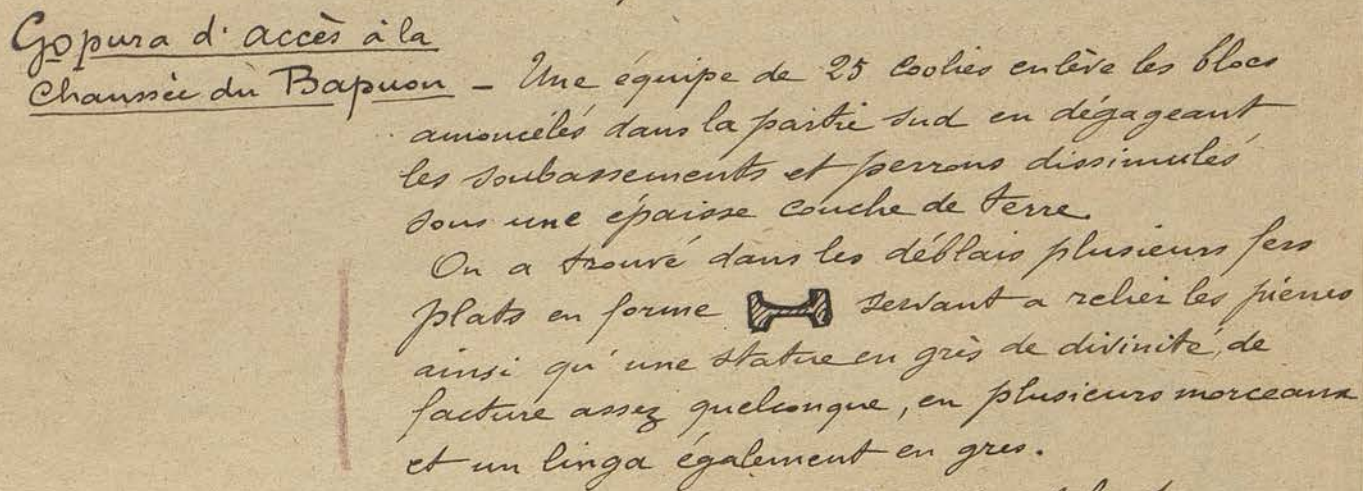 Gopura d'accès à la
Chaussée du Bapuon - Une équipe de 25 Coolies enlève les blocs
amoncelés dans la partie sud en dégageant
les soubassements et perrons dissimulés
sous une épaisse couche de terre.
On a trouvé dans les déblais plusieurs fers
plats en forme servant a relier les pierres
ainsi qu'une statue en grès de divinité, de
facture assez quelconque, en plusieurs morceaux
et un linga également en gres.